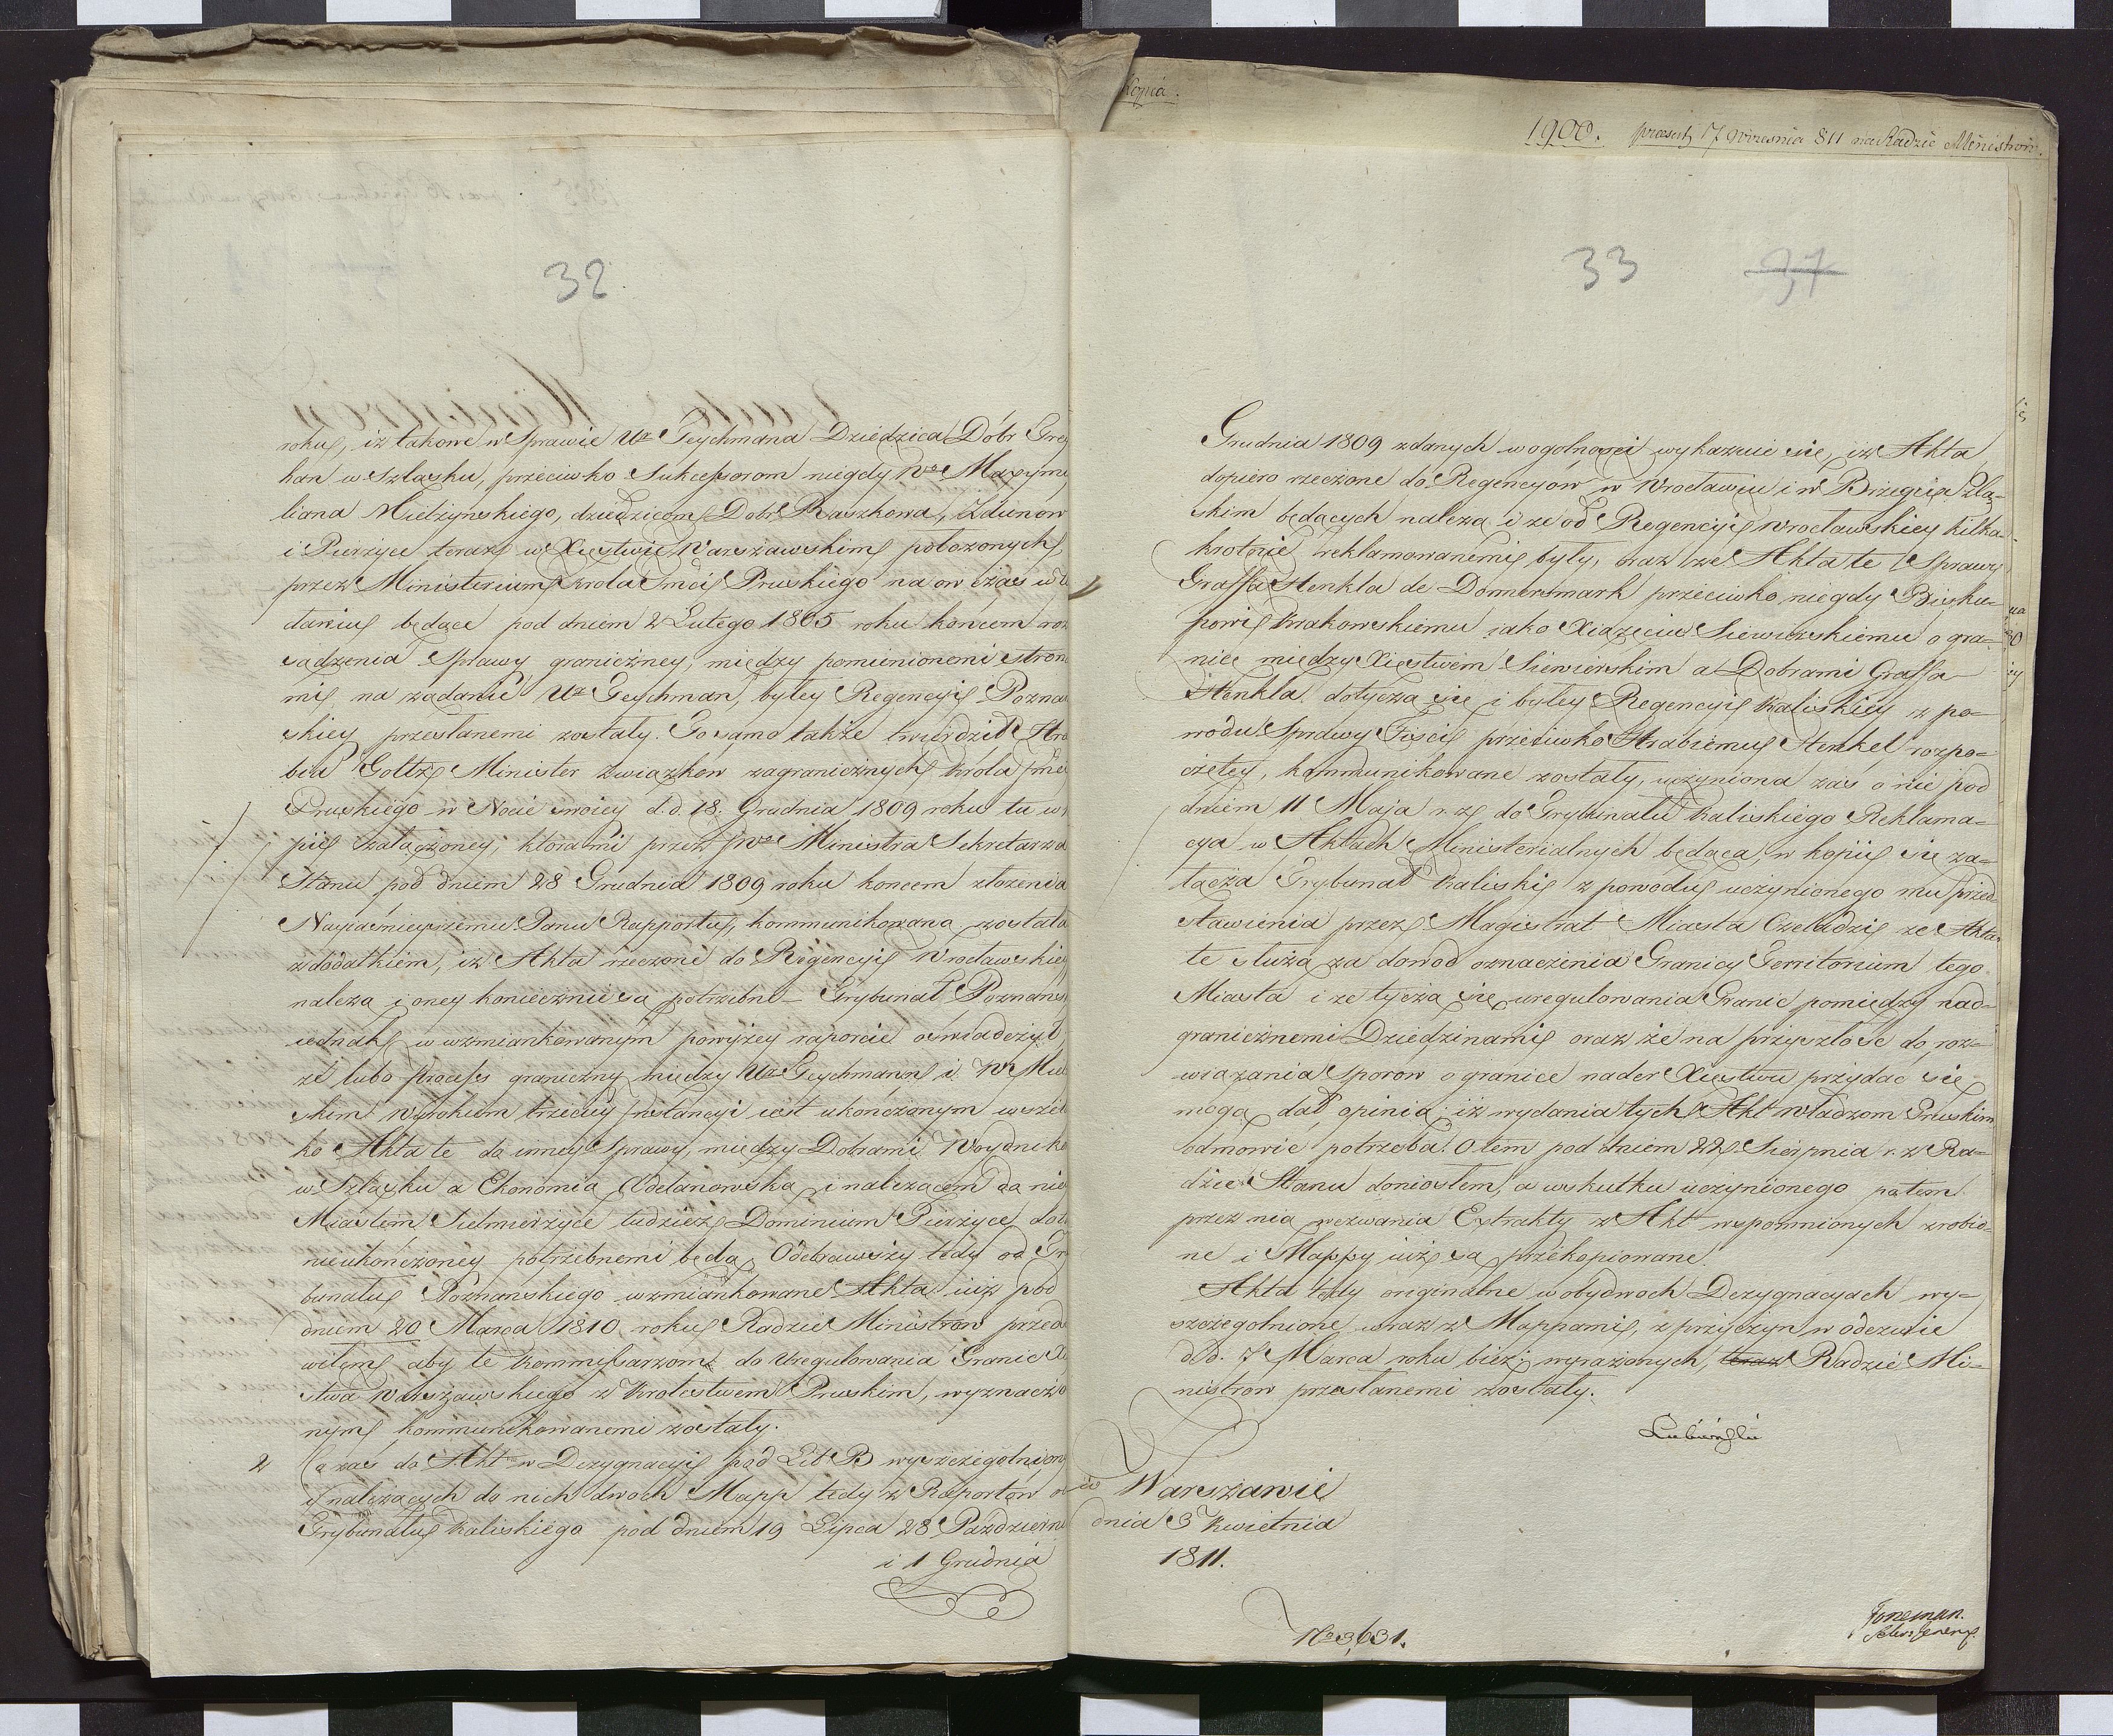 32
roku, iż takowe w Sprawie Ur Teychmana Dziedzica Dóbr
han w Szląsku, przeciwko Sukcessorom niegdy Wo Maxymi
liana Mielżynskiego, dziedzicom Dobr Raszkowa, Zdunow
i Pierzyce teraz w Xięstwie Warszawskim położonych,
przez Ministerium Krola Jmci Pruskiego na on czas
daniu będące pod dniem 2 Lutego 1805 roku koncem roz
sądzenia Sprawy graniczney, między pomienionemi stron
mi, na żądanie Ur Teychman, byłey Regencyi Poznan
skiey przesłanemi zostały. To samo także twierdził Hra
bia Goltz Minister Związkow zagranicznych Krola Jmci
Pruskiego w Nocie swoiey d.d. 18 Grudnia 1809 roku tu w
pii załączoney, która mi przez JWo Ministra Sekretarza
Stanu pod dniem 28 Grudnia 1809 roku koncem złożenia
Nayiaśnieyszemu Panu Rapportu, kommunikowana została
z dodatkiem, iż Akta rzeczone do Regencyi Wrocławskiey
należą i oney koniecznie są potrzebne – Trybunał Poznans
iednak w wzmiankowanym powyżey raporcie oswiadczył,
że lubo process graniczny między Ur Teychmann i W Miel
skim Wyrokiem trzeciey Instancyi iest ukończonym wszel
ko Akta te do inney Sprawy, między Dobrami
w Szląsku a Ekonomią Odolanowską i należącem do niey
Miastem Sulmierzyce tudzież Dominium Pierzyce dot
nieukończoney potrzebnemi będą. Odebrawszy tedy od Try
bunału Poznańskiego wzmiankowane Akta iuż pod
dniem 20 Marca 1810 roku Radzie Ministrow przed
wiłem aby te Kommissarzom do Uregulowania Granic Xię
stwa Warszawskiego z Krolestwem Pruskim, wyznaczo
nym kommunikowanemi zostały.
2 Co zaś do Akt w Dezygnacyi pod Lit. B wyszczególnion
i należących do nich dwoch Mapp tedy z Raportów
Trybunału Kaliskiego pod dniem 19 Lipca 28 Październi
i 1 Grudnia
Kopia.
1900. præsent. 17 Września 811 na Radzie Ministrow.
33 37
Grudnia 1809 zdanych w ogolności wykazuie się, iż Akta
dopiero rzeczone do Regencyów w Wrocławiu i w Brzegu Szlą-
skim będących należą i że od Regencyi Wrocławskiey kilka-
krotnie reklamowanemi były, oraz że Akta te Sprawy
Graffa Henkla de Donnersmark przeciwko niegdy Bisku-
powi Krakowskiemu iako Xiążęciu Siewierskiemu o gra-
nice między Xięstwem Siewierskim a Dobrami Graffa
Henkla dotyczą się i byłey Regencyi Kaliskiey z po-
wodu Sprawy Fisci przeciwko Hrabiemu Henkel, rozpo-
czętey, kommunikowane zostały, uczyniona zaś o nie pod
dniem 11 Maja r. z. do Trybunału Kaliskiego Reklama-
cya w Aktach Ministerialnych będąca, w kopii się za-
łącza. Trybunał Kaliski z powodu uczynionego mu przed
stawienia przez Magistrat Miasta Czeladzi, że Akta
te służą za dowod oznaczenia Granicy Territorium tego
Miasta i że tyczą się uregulowania Granic pomiędzy nad-
granicznemi Dziedzinami, oraz że na przyszłość do roz-
wiązania Sporow o granice nader Xięstwu przydać się
mogą dał opinią, iż wydania tych Akt Władzom Pruskim
odmowić potrzeba. O tem pod dniem 22 Sierpnia r. z. Ra-
dzie Stanu doniosłem, a w skutku uczynionego potem
przez nią wezwania Extrakty z Akt wspomnionych zrobio-
ne i Mappy iuż są przekopiowane.
Akta tedy originalne w obydwoch Dezygnacyach wy-
szczególnione wraz z Mappami, z przyczyn w Odezwie
d.d. 7 Marca roku bież: wyrażonych, teraz Radzie Mi-
nistrow przesłanemi zostały.
Łubieński
w Warszawie
dnia 3 Kwietnia
1811.
No 3,631.